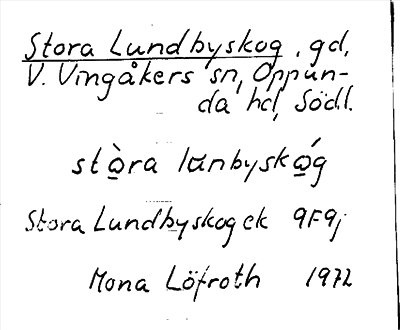 Stora Lundbyskog, gd,
V. Vingåkers sn, Oppun-
da hd, Södl.
stò̲ra lūnbyskó̲g
Stora Lundbyskog ek 9F9j
Mona Löfroth 1972